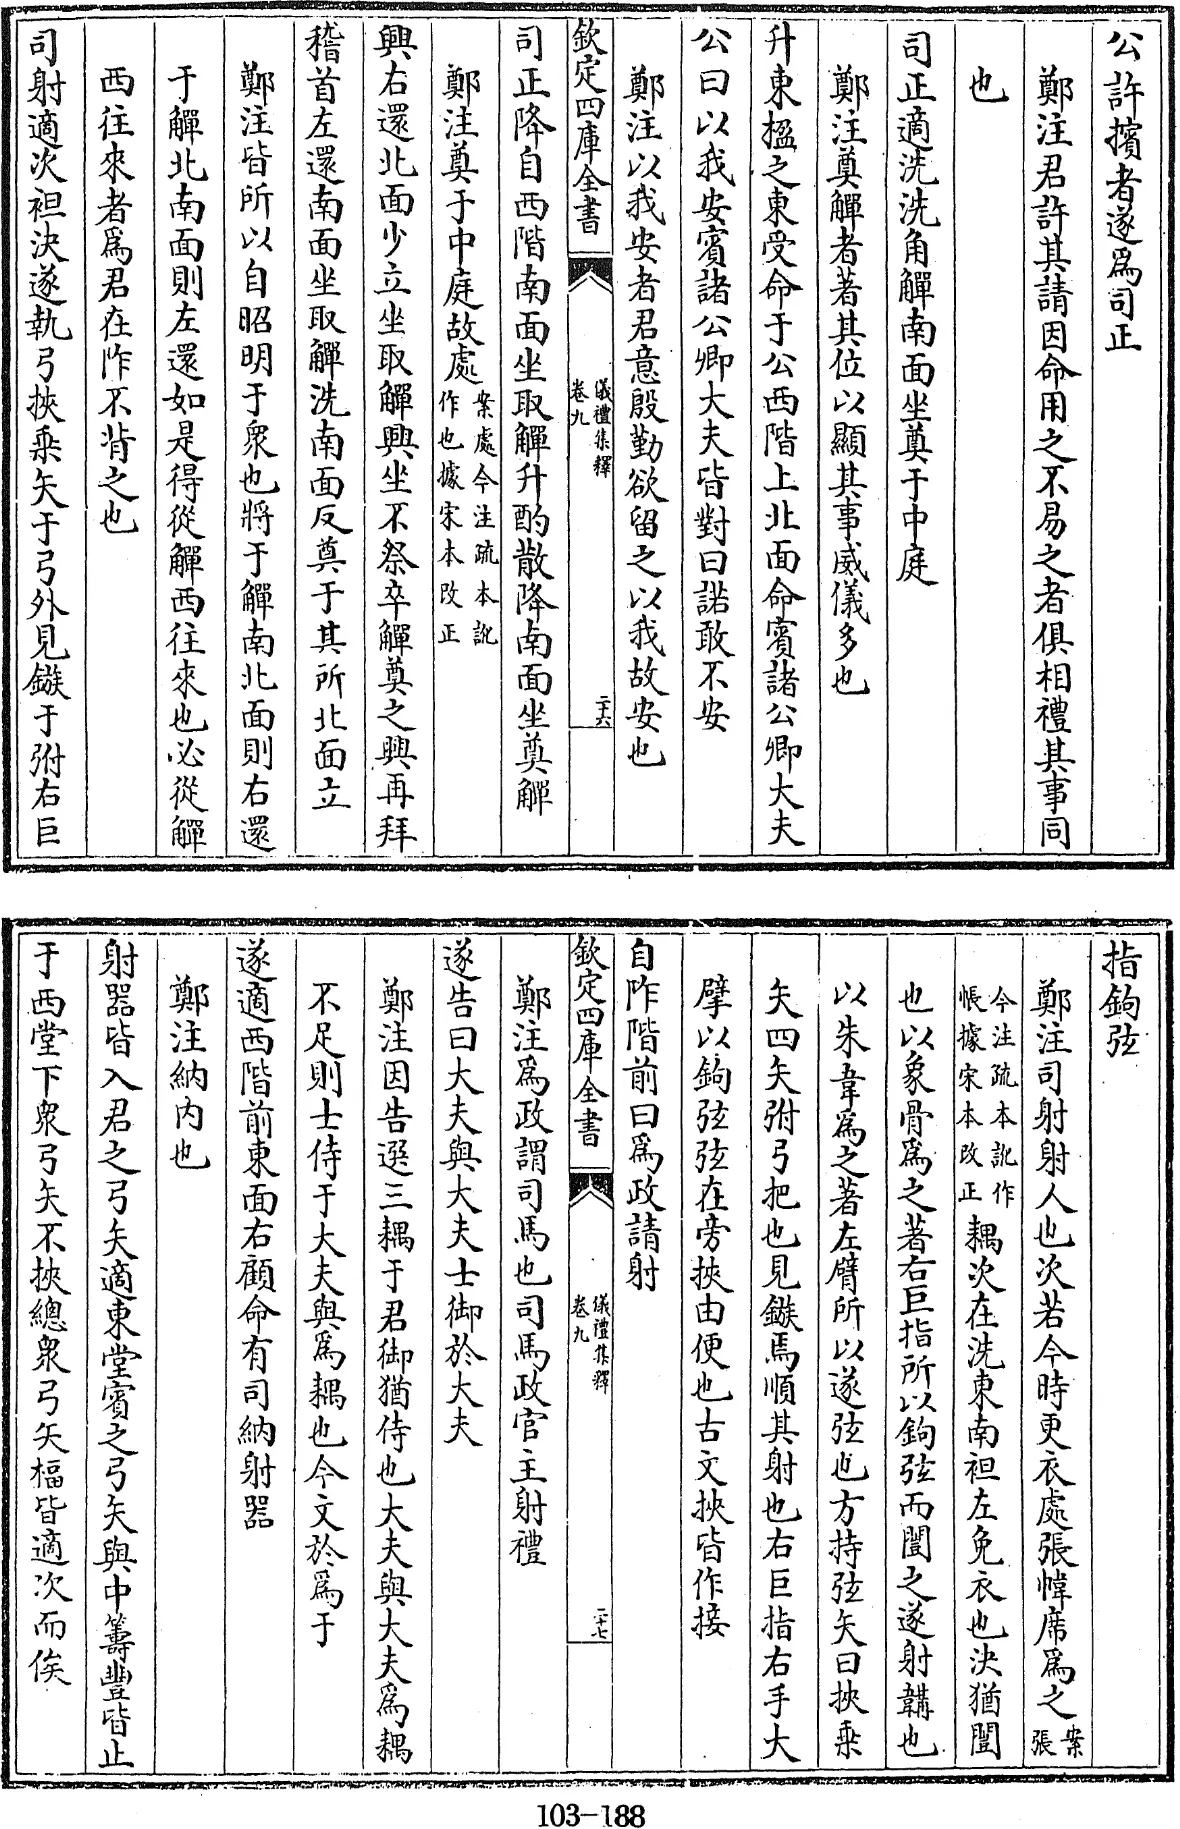 公許擯者遂爲司正
鄭注君許其請因命用之不易之者俱相禮其事同
也
司正適洗洗角觶南面坐奠于中庭
鄭注奠觶者著其位以顯其事威儀多也
升東楹之東受命于公西階上北面命賓諸公卿大夫
公曰以我安賓諸公卿大夫皆對曰諾敢不安
鄭注以我安者君意殷勤欲留之以我故安也
欽定四庫全書
儀禮集釋
卷九
二十六
司正降自西階南面坐取觶升酌散降南面坐奠觶
鄭注奠于中庭故處案處今注疏本訛
作也據宋本改正
興右還北面少立坐取觶興坐不祭卒觶奠之興再拜
稽首左還南面坐取觶洗南面反奠于其所北面立
鄭注皆所以自昭明于衆也將于觶南北面則右還
于觶北南面則左還如是得從觶西往來也必從觶
西往來者爲君在阼不背之也
司射適次袒決遂執弓挾乘矢于弓外見鏃于弣右巨
指鉤弦
鄭注司射射人也次若今時更衣處張幃席爲之案
張
今注疏本訛作
帳據宋本改正耦次在洗東南袒左免衣也決猶闓
也以象骨爲之著右巨指所以鉤弦而闓之遂射韝也
以朱韋爲之著左臂所以遂弦也方持弦矢曰挾乘
矢四矢弣弓把也見鏃焉順其射也右巨指右手大
擘以鉤弦弦在旁挾由便也古文挾皆作接
自阼階前曰爲政請射
欽定四庫全書
儀禮集釋
卷九
二十七
鄭注爲政謂司馬也司馬政官主射禮
遂告曰大夫與大夫士御於大夫
鄭注因告選三耦于君御猶侍也大夫與大夫爲耦
不足則士侍于大夫與爲耦也今文於爲于
遂適西階前東面右顧命有司納射器
鄭注納內也
射器皆入君之弓矢適東堂賓之弓矢與中籌豐皆止
于西堂下衆弓矢不挾總衆弓矢楅皆適次而俟
103-188